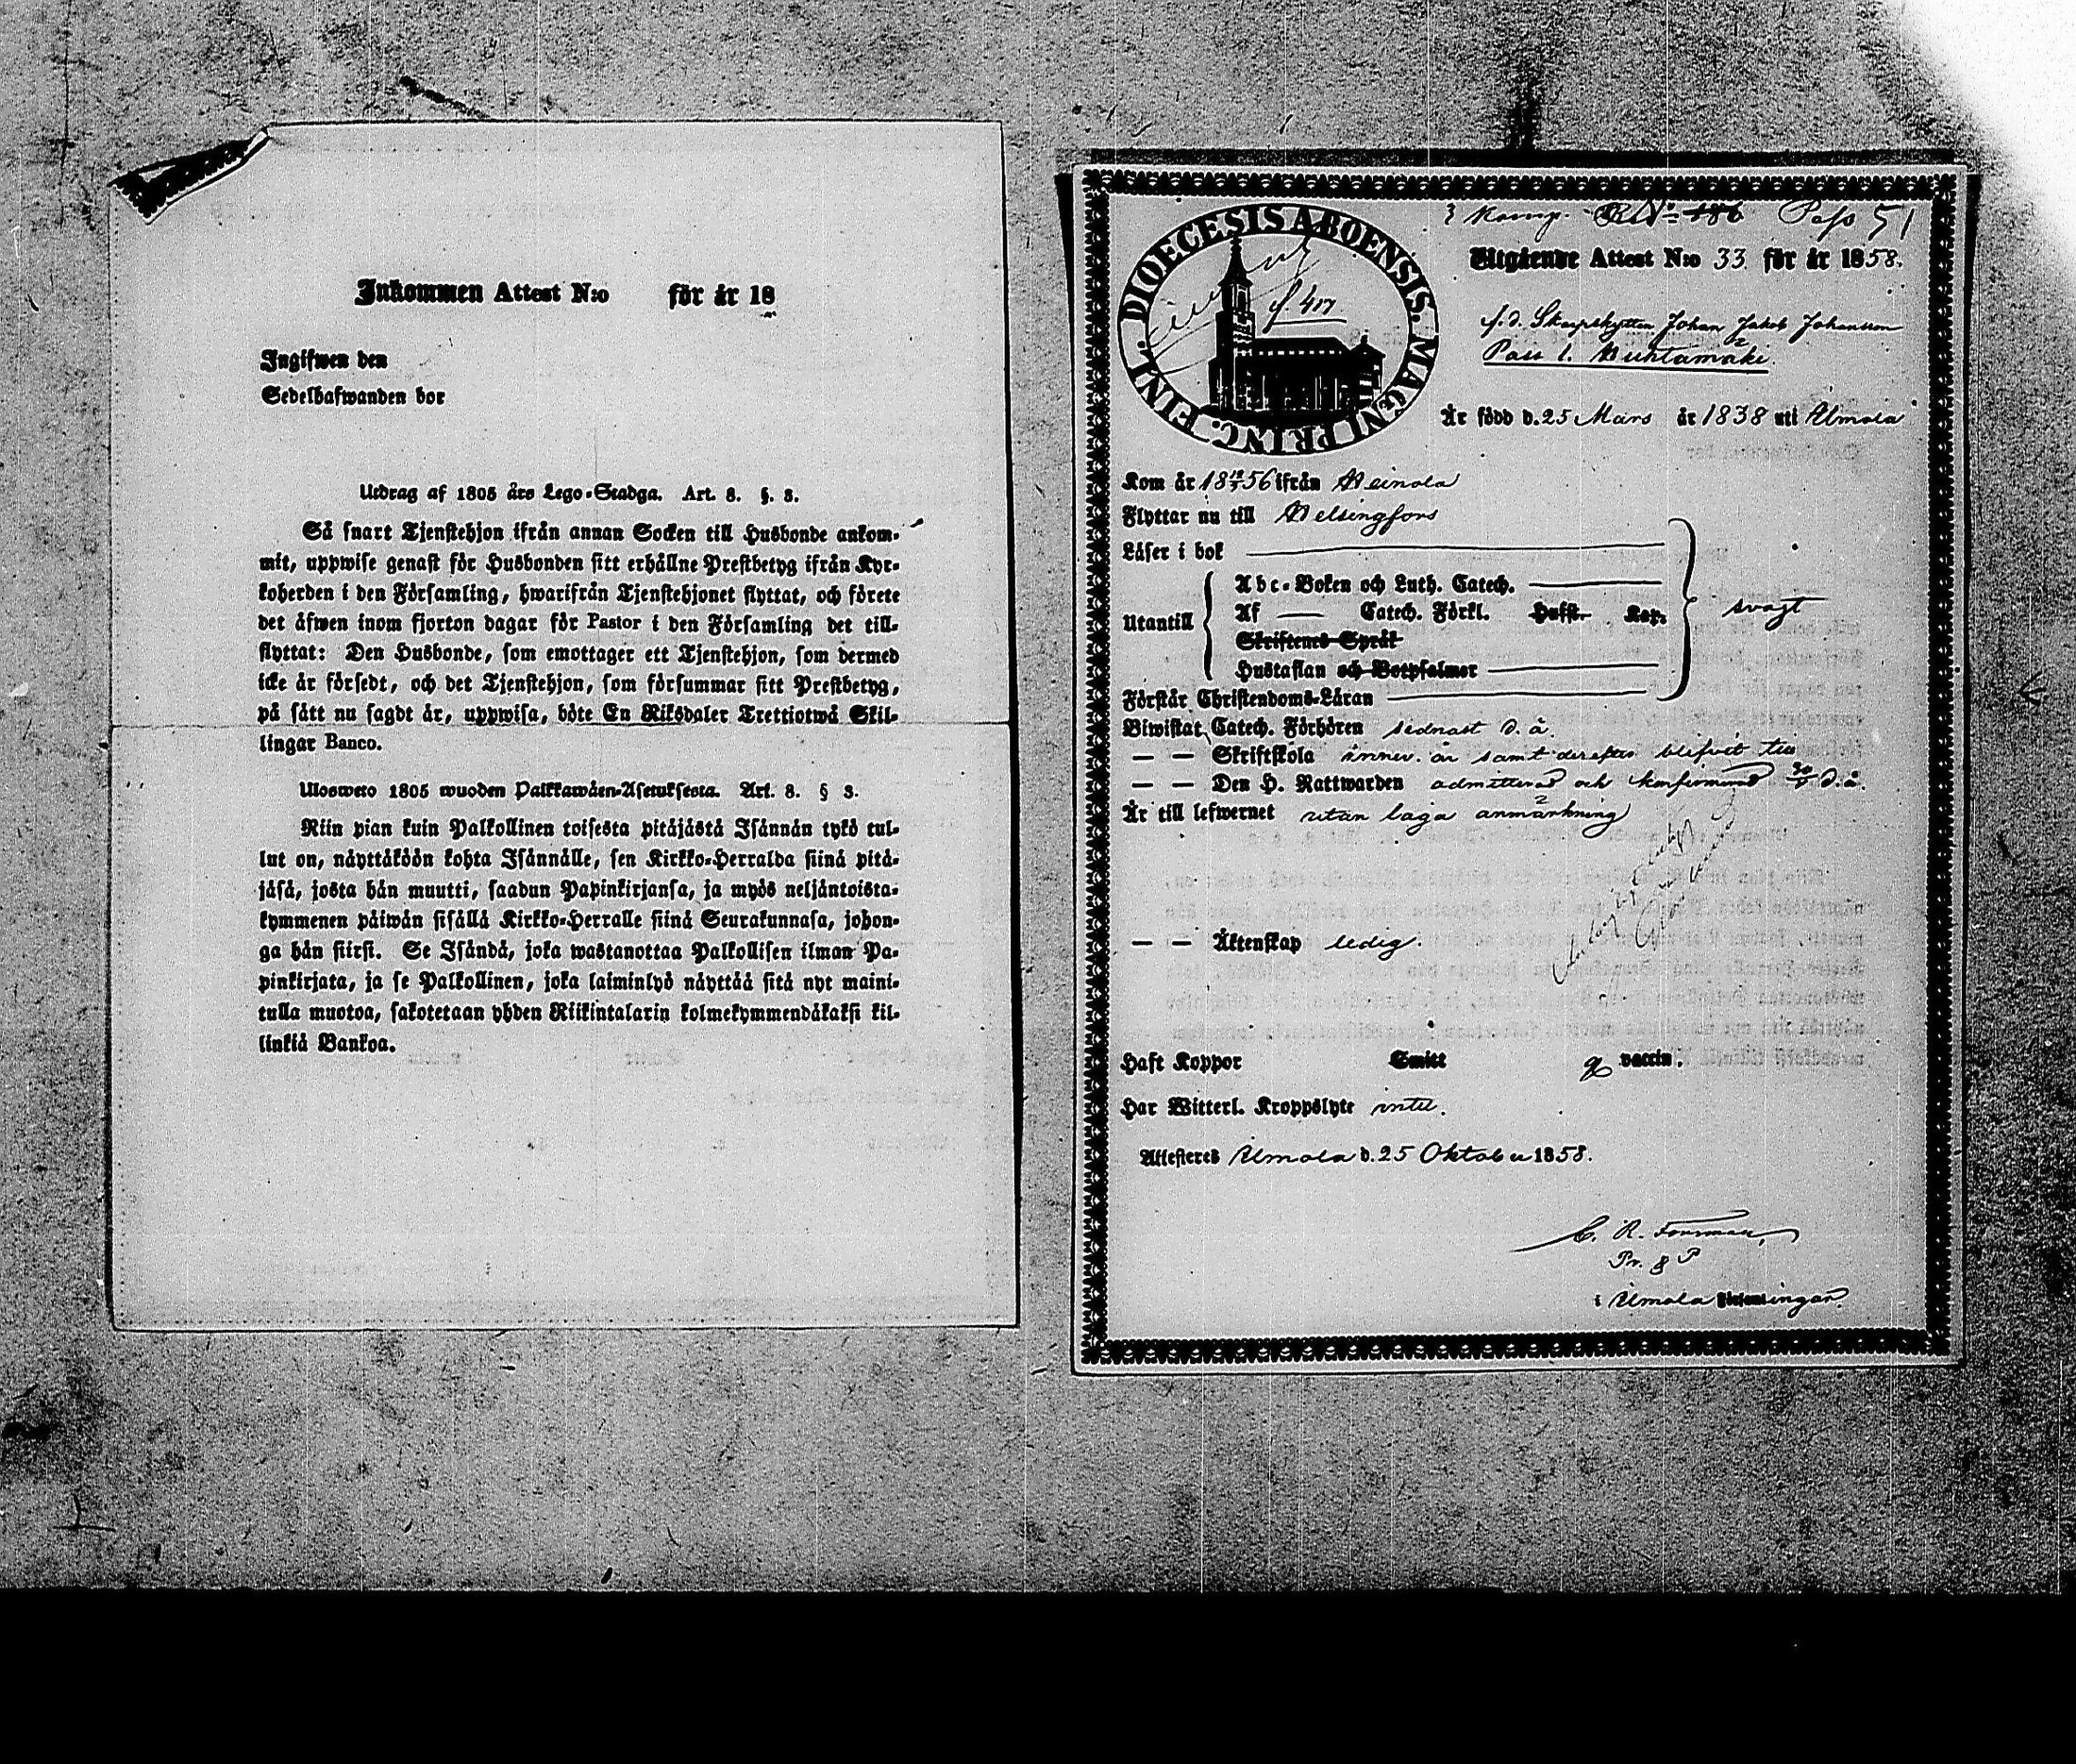 Inkommen Attest N:o för år 18
Ingifwen den
Sedelhafwanden bor
Utdrag af 1805 års Lego-Stadga. Art. 8. §. 3.
Så snart Tjenstehjon ifrån annan Socken till Husbonde ankom-
mit, uppwise genast för Husbonden sitt erhållne Prestbetyg ifrån Kyr-
koherden i den Församling, hwarifrån Tjenstehjonet flyttat, och förete
det äfwen inom fjorton dagar för Pastor i den Församling det till-
flyttat: Den Husbonde, som emottager ett Tjenstehjon, som dermed
icke är försedt, och det Tjenstehjon, som försummar sitt Prestbetyg,
på sätt nu sagdt är, uppwisa, böte En Riksdaler Trettiotwå Skil-
lingar Banco.
Ulosweto 1805 wuoden Palkkawäen-Asetuksesta. Art. 8. § 3.
Niin pian kuin Palkollinen toisesta pitäjästä Isännän tykö tul-
lut on, näyttäköön kohta Isännälle, sen Kirkko-Herralda siinä pitä-
jäsä, josta hän muutti, saadun Papinkirjansa, ja myös neljäntoista-
kymmenen päiwän sisällä Kirkko-Herralle siinä Seurakunnasa, johon-
ga hän siirsi. Se Isändä, joka wastanottaa Palkollisen ilman Pa-
pinkirjata, ja se Palkollinen, joka laiminlyö näyttää sitä nyt maini-
tulla muotoa, sakotetaan yhden Riikintalarin kolmekymmendäkaksi kil-
linkiä Bankoa.
3 Komp. No 186 Pass 51
DIOECESIS ABOENSIS. MAGNI PRINC. FINL.
Utgående Attest N:o 33. för år 1858.
f.d. Skarpskytten Johan Jakob Johansson
Pass l. Huhtamäki
Är född d. 25 Mars år 1838 uti Ilmola
Kom år 1856 ifrån Heinola
Flyttar nu till Helsingfors
Läser i bok
Utantill
Abc-Boken och Luth. Catech.
Af Catech. Förkl. Hufst. Kap.
Skriftenes Språk
Hustaflan och Botpsalmer
svagt
Förstår Christendoms-Läran
Biwistat Catech. Förhören sednast d. å.
— — Skriftskola innev. år samt derefter blifvit till
— — Den H. Nattwarden admitterad och konfirmerad d. å.
Är till lefwernet utan laga anmärkning
— — Äktenskap ledig.
Haft Koppor Smitt vaccin.
Har Witterl. Kroppslyte intet.
Attesteres Ilmola d. 25 Oktober 1858.
C. R. Forsman,
Pr. & P
i Ilmola Församlingar.